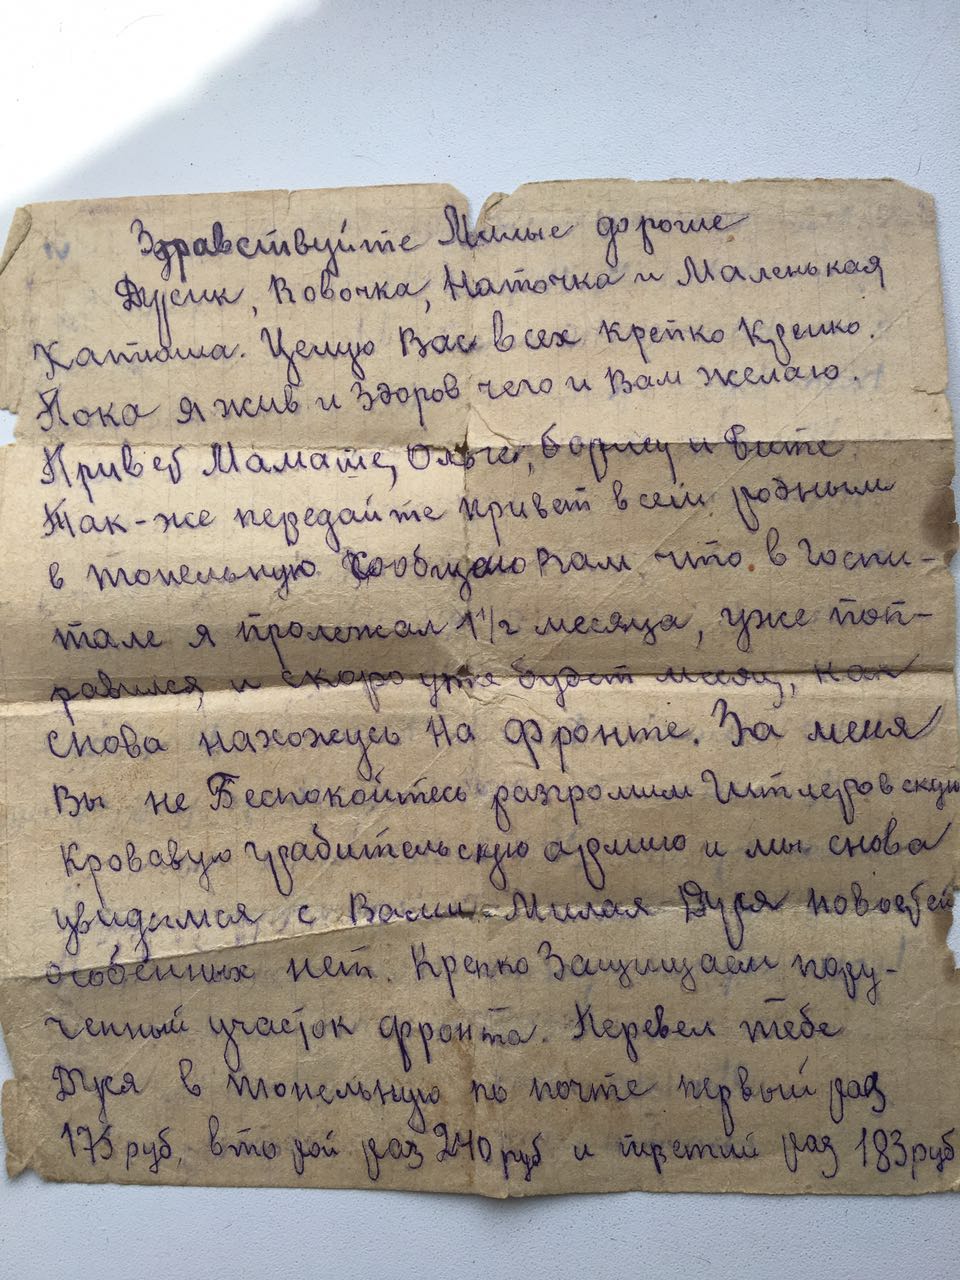 Здравствуйте Милые дорогие
Дусик, Вовочка, Наточка и Маленькая
Катюша. Целую Вас всех крепко крепко.
Пока я жив и здоров чего и Вам желаю.
Привет Мамаше, Ольге, Борису и Вите
Так-же передайте привет всем родным
в топельную Сообщаю Вам что в Госпи-
тале я пролежал 1 1/2 месяца, уже поп-
равился, и скоро уже будет месяц, как
снова нахожусь на фронте. За меня
Вы не Беспокойтесь разгромим Гитлеровскую
Кровавую грабительскую армию и мы снова
увидимся с Вами. Милая Дуся новостей
особенных нет. Крепко Защищаем пору-
ченный участок фронта. Перевел тебе
Дуся в топельную по почте первый раз
175 руб, второй раз 240 руб и третий раз 183 руб